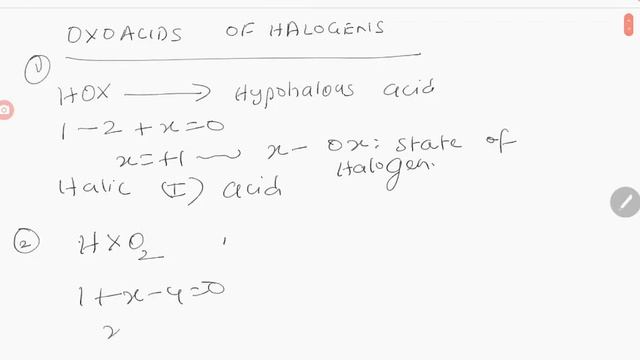 OXOACIDS OF HALOGENS
1) HOX → Hypohalous acid
1-2+x=0
x=+1 ~ x - ox: state of Halogen.
Halic (I) acid
② HXO₂
1+x-4=0
x